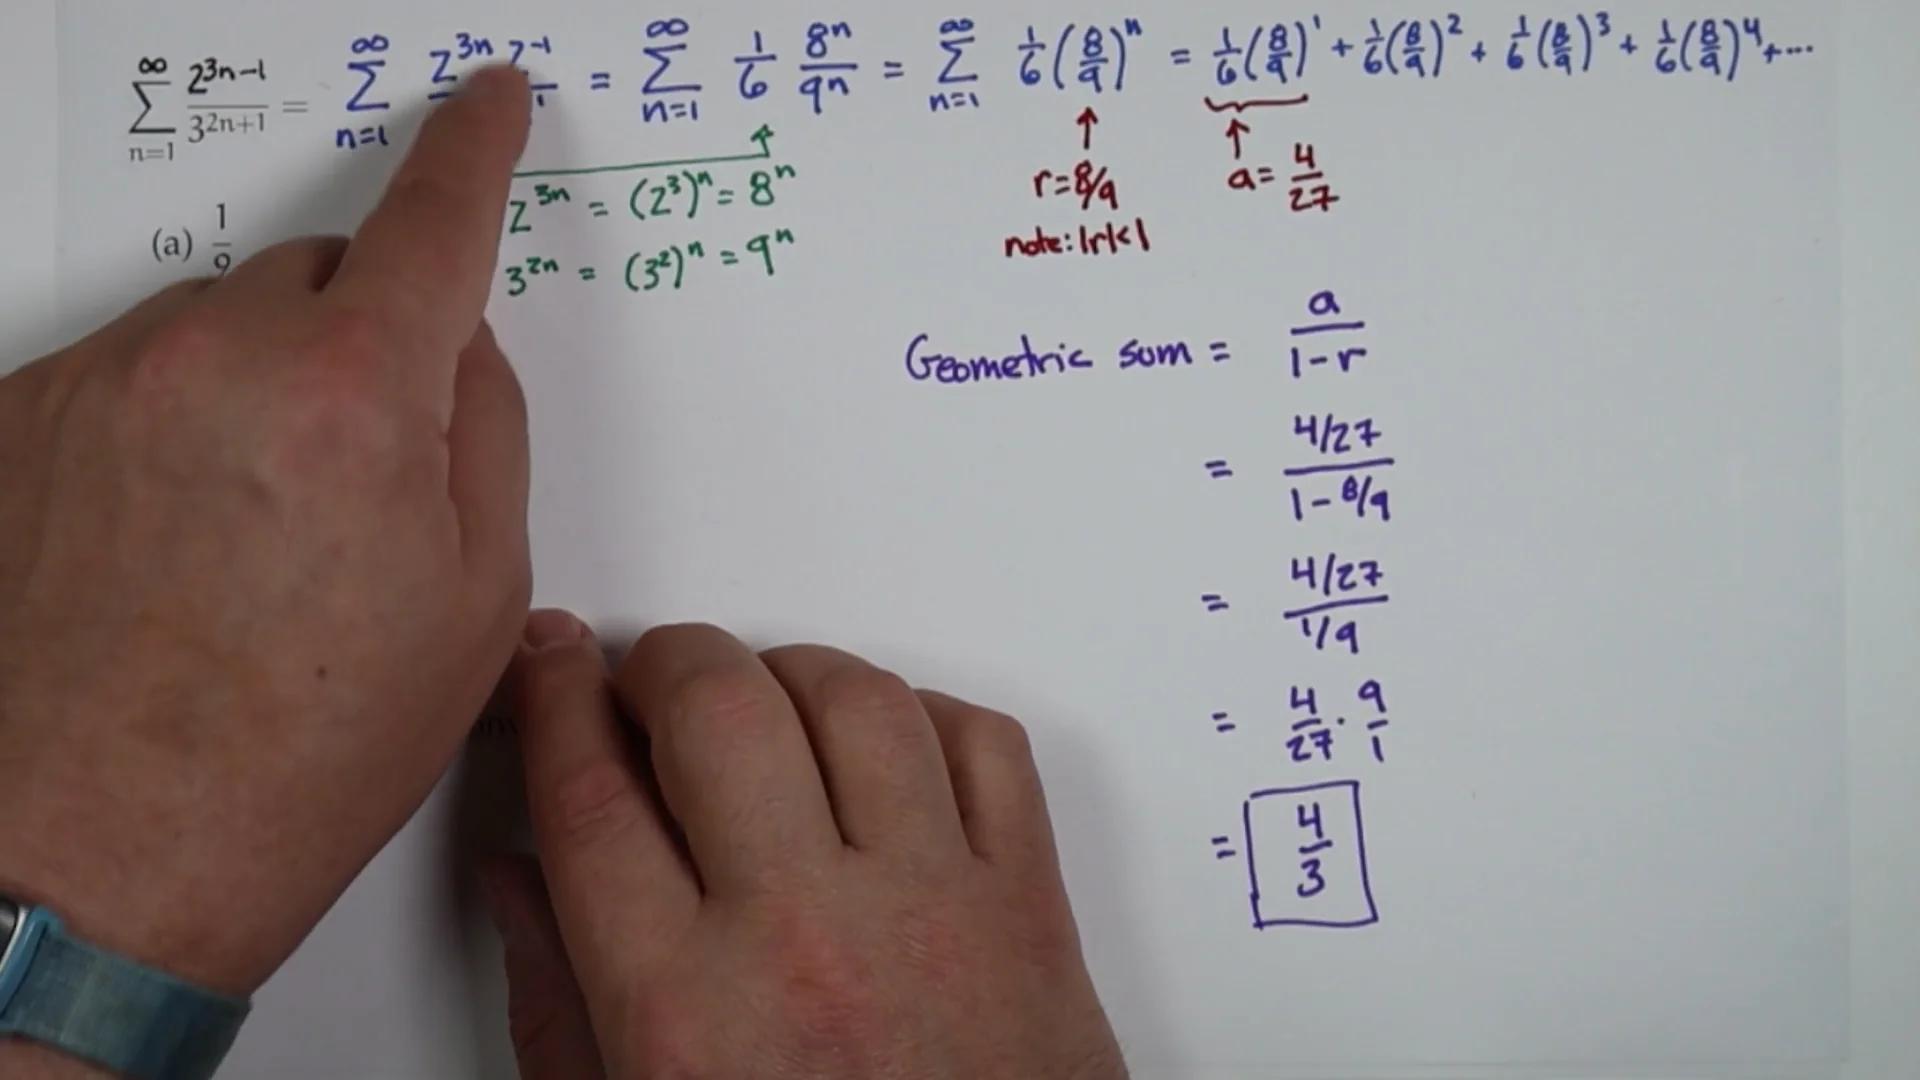 ∞ ∑ n=1 2^{3n-1}/3^{2n+1} = ∞ ∑ n=1 2^{3n} 2^{-1} = ∞ ∑ n=1 1/6 8^n/9^n = ∞ ∑ n=1 1/6 (8/9)^n = 1/6 (8/9)^1 + 1/6 (8/9)^2 + 1/6 (8/9)^3 + 1/6 (8/9)^4 + ...
2^{3n} = (2^3)^n = 8^n
3^{2n} = (3^2)^n = 9^n
(a) 1/9
r=8/9
note: |r|<1
a= 4/27
Geometric sum = a/(1-r)
= (4/27)/(1-8/9)
= (4/27)/(1/9)
= 4/27 · 9/1
= 4/3